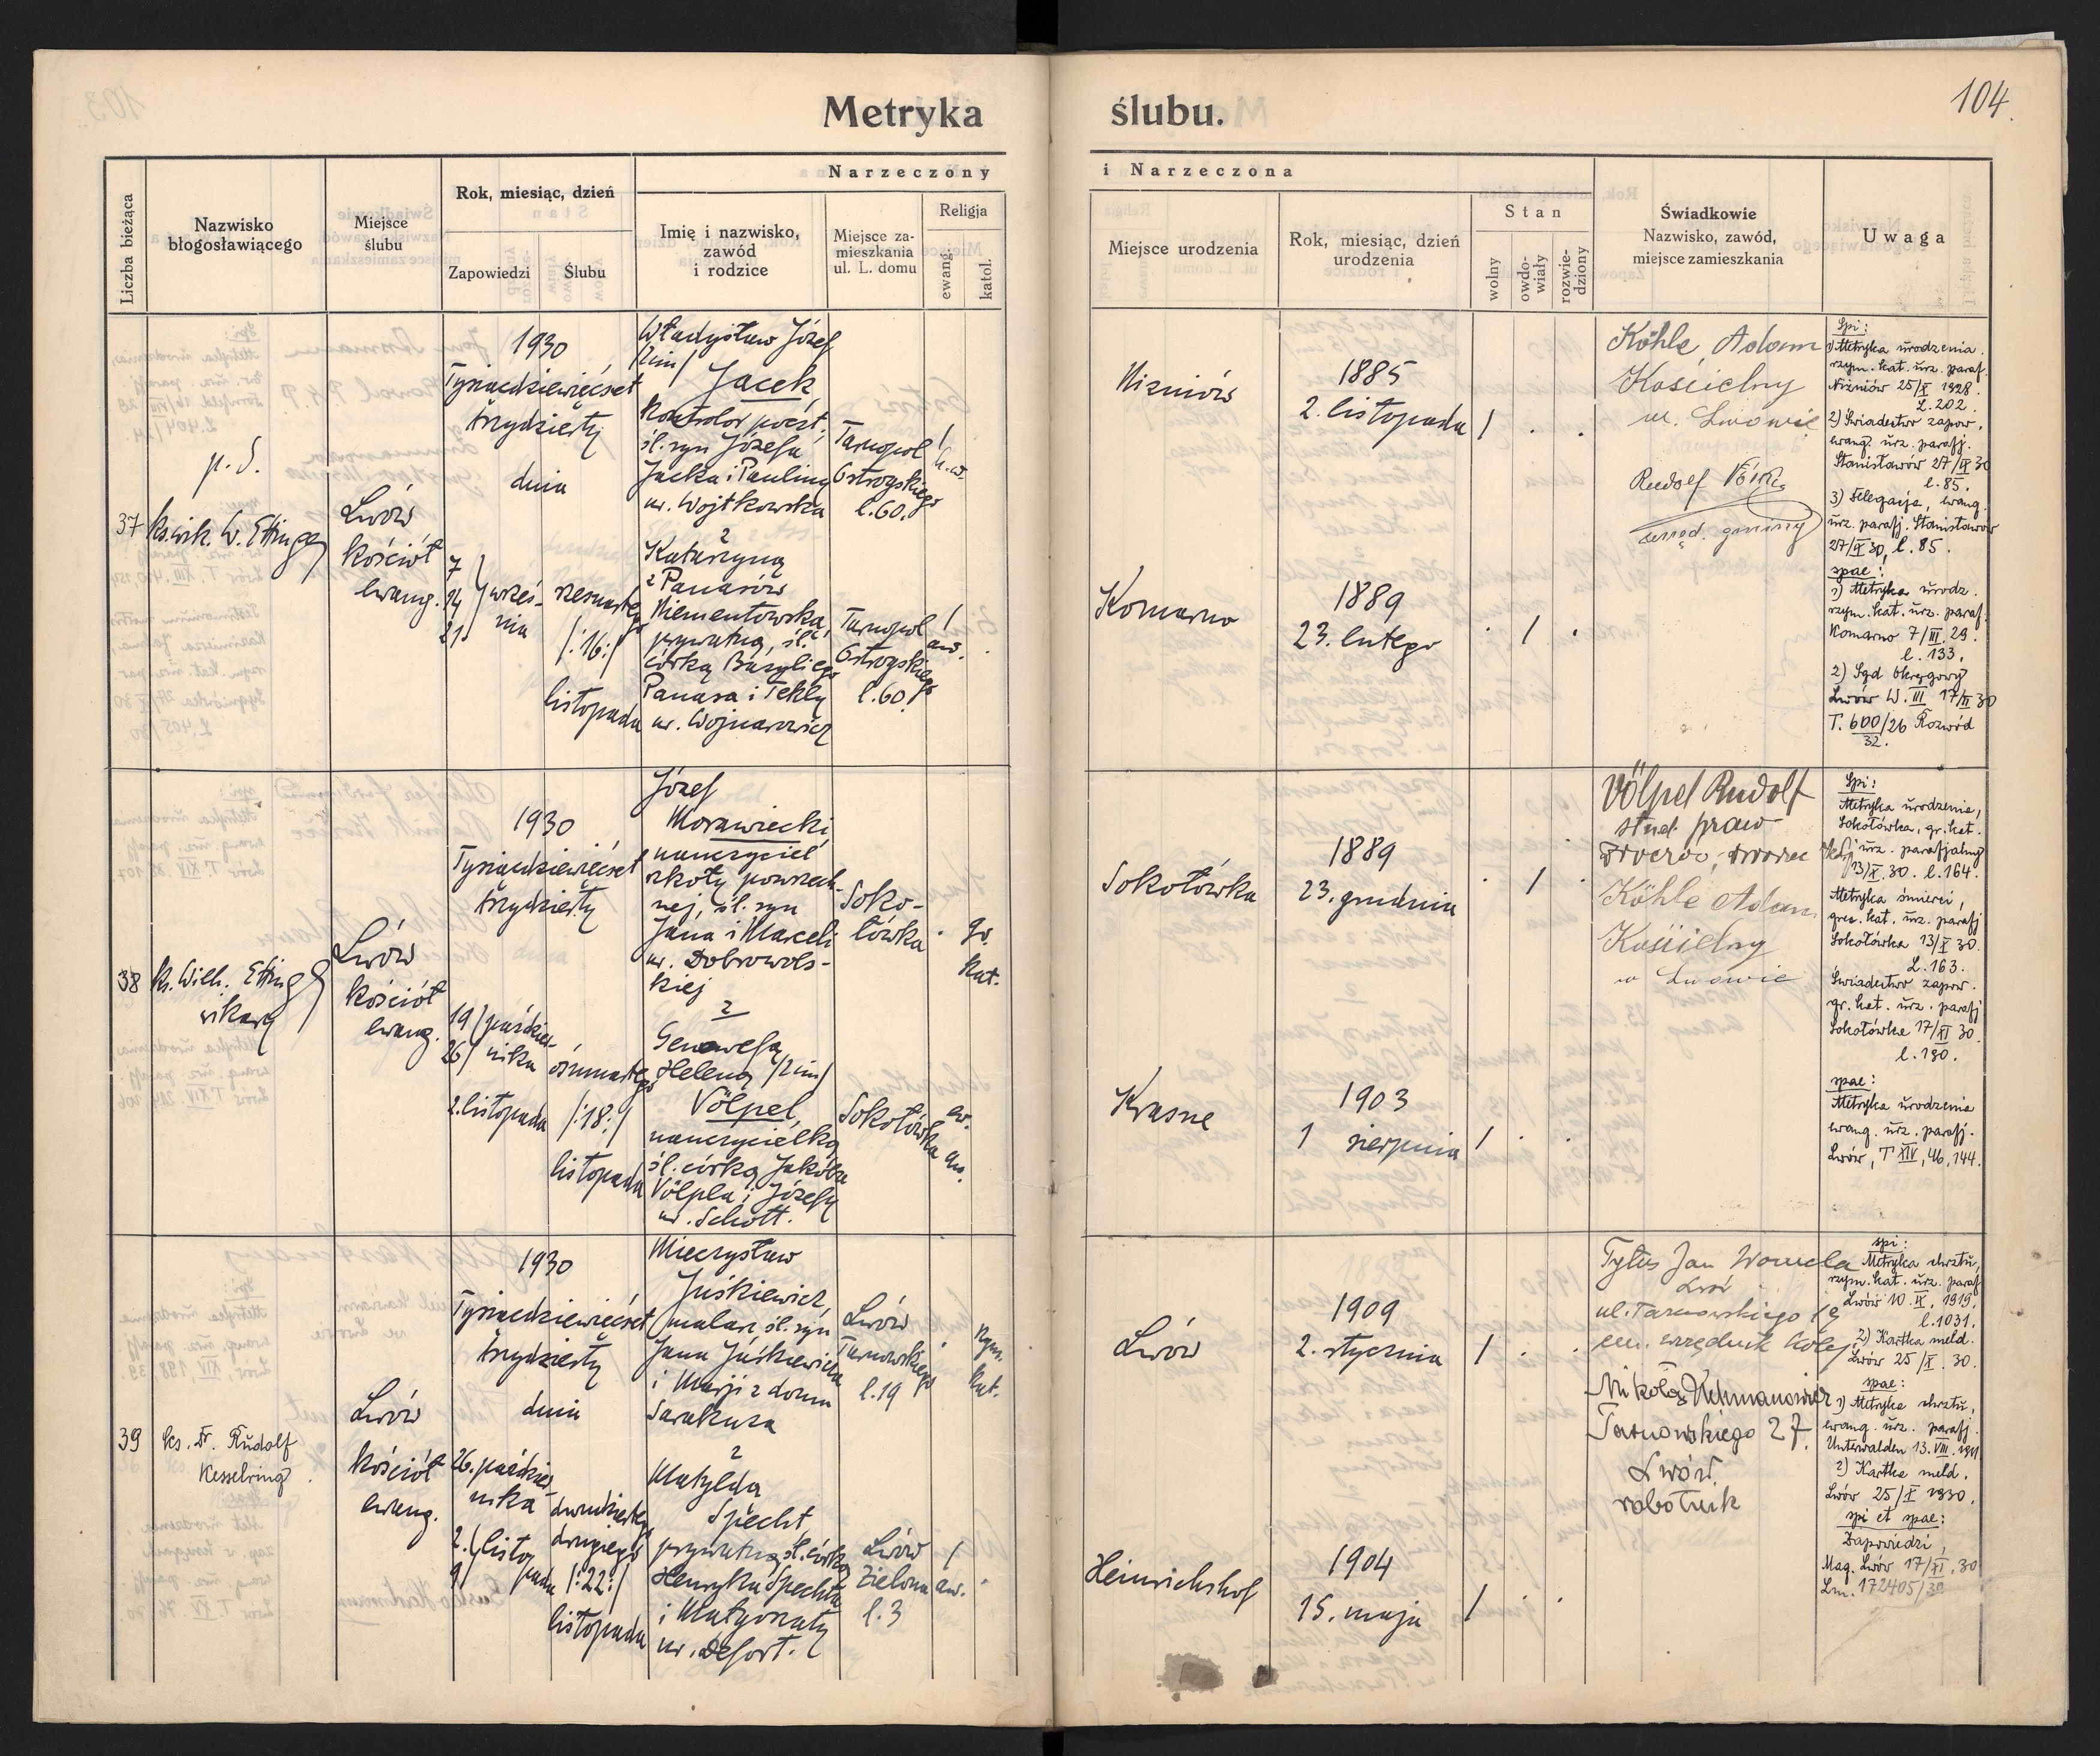 104.
Metryka ślubu.
Narzeczony i Narzeczona
Liczba bieżąca
Nazwisko
błogosławiącego
Miejsce
ślubu
Rok, miesiąc, dzień
Zapowiedzi
Ślubu
Imię i nazwisko,
zawód
i rodzice
Miejsce za-
mieszkania
ul. L. domu
Religja
ewang.
katol.
Miejsce urodzenia
Rok, miesiąc, dzień
urodzenia
Stan
wolny
owdo-
wiały
rozwie-
dziony
Świadkowie
Nazwisko, zawód,
miejsce zamieszkania
Uwaga
37
p. d.
ks. wik. W. Ettinger
Lwów
kościół
ewang.
1930
Tysiącdziewięćset
trzydziesty
dnia
7
14
21
wrześ-
nia
szesnastego
/:16:/
listopada
Władysław Józef
/2im/
Jacek,
kontrolor poczt.,
śl. syn Józefa
Jacka i Pauliny
ur. Wojtkowska
z
Katarzyną
z Panasów
Niementowską,
prywatną, śl.
córką Bazylego
Panasa i Tekly
ur. Wojnarowicz
Tarnopol
Ostrogskiego
l. 60.
Tarnopol
Ostrogskiego
l. 60.
Niżniów
1885
2. listopada
Komarno
1889
23. lutego
Köhle Adam
Kościelny
we Lwowie
Rudolf
urzęd. gminny
Spi:
1) Metryka urodzenia
rzym. kat. urz. paraf.
Niżniów 25/X 1928.
L. 202.
2) Świadectwo zapow.
ewang. urz. parafj.
Stanisławów 27/IX 30
l. 85.
3) Delegacja, ewang.
urz. parafj. Stanisławów
27/IX 30, l. 85.
spae:
1) Metryka urodz.
rzym. kat. urz. paraf.
Komarno 7/III. 29.
l. 133.
2) Sąd Okręgowy
Lwów W. III 17/II 30
T. 600/26 Rozwód
32.
38
ks. Wilh. Ettinger
wikary
Lwów
kościół
ewang.
1930
Tysiącdziewięćset
trzydziesty
19
26
paździer-
nika
2. listopada
ósmnastego
/:18:/
listopada
Józef
Morawiecki,
nauczyciel
szkoły powszech-
nej, śl. syn
Jana i Marceli
ur. Dobrowols-
kiej
z
Genowefą
Heleną /2im/
Völpel,
nauczycielką
śl. córką Jakóba
Völpla i Józefy
ur. Schott.
Soko-
łówka
gr.
kat.
Sokołówka
ew.
au.
Sokołówka
1889
23. grudnia
Krasne
1903
1 sierpnia
Völpel Rudolf
stud. praw
Köhle Adam
Kościelny
w Lwowie
Spi:
Metryka urodzenia,
Sokołówka, gr. kat.
urz. parafjalny
13/X. 30. l. 164.
Metryka śmierci,
grec. kat. urz. parafj
Sokołówka 13/X 30.
L. 163.
Świadectwo zapow.
gr. kat. urz. parafj
Sokołówka 17/XI 30.
l. 180.
spae:
Metryka urodzenia
ewang. urz. parafj.
Lwów, T XIV, 46, 144.
39
ks. Dr. Rudolf
Kesselring.
Lwów
kościół
ewang.
1930
Tysiącdziewięćset
trzydziesty
dnia
26. paździer-
nika
2.
9
listo-
pada
dwudziestego
drugiego
/:22:/
listopada
Mieczysław
Juśkiewicz,
malarz śl. syn
Jana Juśkiewicza
i Marji z domu
Sarakuza
z
Matyldą
Specht,
prywatną, śl. córką
Henryka Spechta
i Małgorzaty
ur. Defort.
Lwów
Tarnowskiego
l. 19
rzym.
kat.
Lwów
Zielona
l. 3
au.
Lwów
1909
2. stycznia
Heinrichshof
1904
15. maja
Tytus Jan
Lwów
ul. Tarnowskiego 19
em. urzędnik kolej.
Mikołaj
Tarnowskiego 27.
Lwów,
robotnik
spi:
Metryka chrztu,
rzym. kat. urz. paraf
Lwów 10. IX. 1919.
l. 1031.
2) Kartka meld.
Lwów 25/X. 30.
spae:
1) Metryka chrztu,
ewang. urz. parafj.
Unterwalden 13. VIII. 1911
2) Kartka meld.
Lwów 25/X 1930.
spi et spae:
Zapowiedzi,
Mag. Lwów 17/XI. 30
Lm. 172405/30